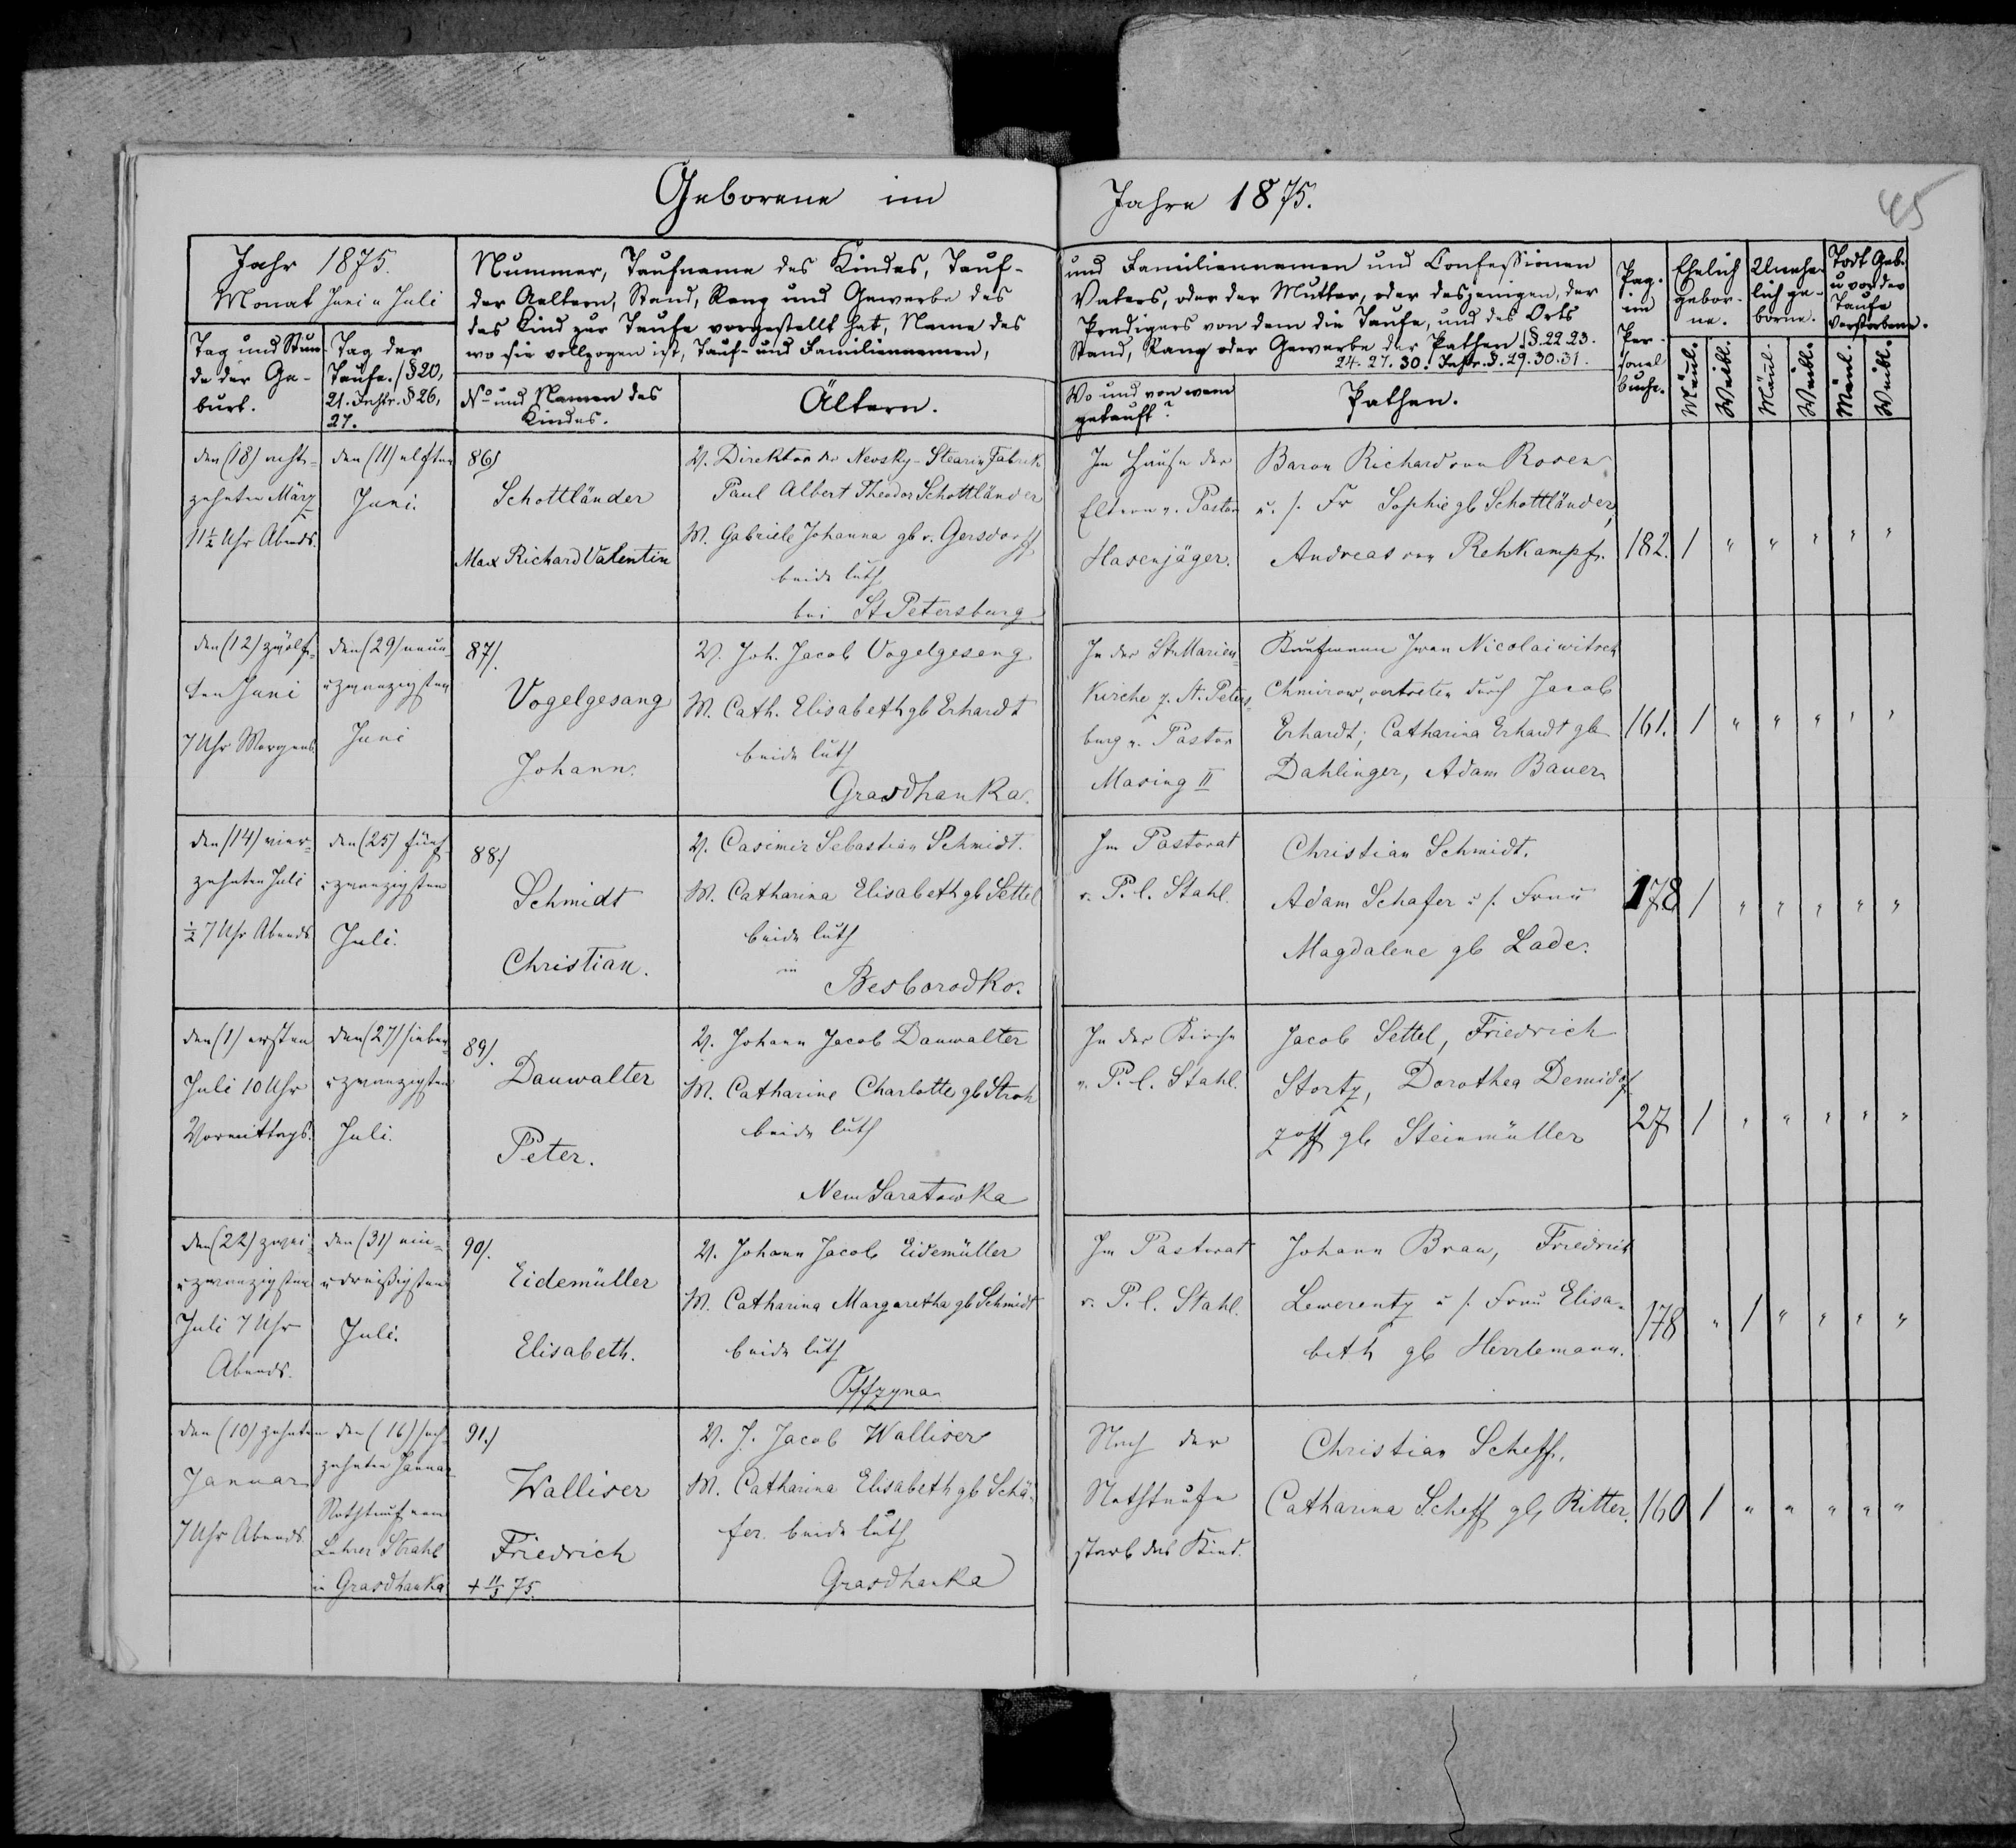 Geborene im Jahre 1875.
45
Jahr 1875.
Monat Juni u Juli
Tag und Stun-
de der Ge-
burt.
Tag der
Taufe. (§ 20,
21. Instr. § 26,
27.
Nummer, Taufname des Kindes, Tauf-
der Aeltern, Stand, Rang und Gewerbe des
das Kind zur Taufe vorgestellt hat, Name des
wo sie vollzogen ist, Tauf- und Familiennamen,
No und Namen des
Kindes.
Ältern.
und Familiennamen und Confessionen
Vaters, oder der Mutter, oder desjenigen, der
Predigers von dem die Taufe, und des Orts
Stand, Rang oder Gewerbe der Pathen (§. 22 23.
24. 27. 30. Instr. §. 29. 30. 31.
Wo und von wem
getauft?
Pathen.
Pag.
im
Per-
sonal
buche.
Ehelich
gebor-
ne.
Unehe-
lich ge-
borne.
Todt Geb.
u vor der
Taufe
Verstorbene.
Mänl.
Weibl.
Mänl.
Weibl.
Mänl.
Weibl.
den (18) acht-
zehnten März
11½ Uhr Abends.
den (11) elften
Juni.
86)
Schottländer
Max Richard Valentin
V. Direktor der Newsky-Stearin Fabrik
Paul Albert Theodor Schottländer
M. Gabriele Johanna gb v. Gersdorff
beide luth
bei St Petersburg
Im Hause der
Eltern v. Pastor
Hasenjäger.
Baron Richard von Rosen
u. s. Fr Sophie gb Schottländer,
Andreas von Rehkampf.
182. 1 " " " " "
den (12) zwölf-
ten Juni
7 Uhr Morgens.
den (29) neun-
u zwanzigsten
Juni
87).
Vogelgesang
Johann.
V. Joh. Jacob Vogelgesang
M. Cath. Elisabeth gb Erhardt
beide luth
Grasdhanka.
In der St Marien-
Kirche z. St. Peters-
burg v. Pastor
Masing II
Kaufmann Iwan Nicolaiwitsch
Chmirow, vertreten durch Jacob
Erhardt; Catharina Erhardt gb
Dahlinger, Adam Bauer
161. 1 " " " " "
den (14) vier-
zehnten Juli
½ 7 Uhr Abends.
den (25) fünf-
u zwanzigsten
Juli.
88)
Schmidt
Christian.
V. Casimir Sebastian Schmidt.
M. Catharina Elisabeth gb Settel
beide luth
in
Besborodko.
Im Pastorat
v. P. l. Stahl.
Christian Schmidt.
Adam Schafer u s. Frau
Magdalene gb Lade.
178 1 " " " " "
den (1) ersten
Juli 10 Uhr
Vormittags.
den (27) sieben-
u zwanzigsten
Juli.
89).
Dauwalter
Peter.
V. Johann Jacob Dauwalter
M. Catharine Charlotte gb Stroh
beide luth
Neu Saratowka
In der Kirche
v. P. l. Stahl.
Jacob Settel, Friedrich
Stortz, Dorothea
gb Steinmüller
27 1 " " " " "
den (22) zwei-
u zwanzigsten
Juli 7 Uhr
Abends.
den (31) ein-
u dreißigsten
Juli.
90).
Eidemüller
Elisabeth.
V. Johann Jacob Eidemüller
M. Catharina Margaretha gb Schmidt
beide luth
Im Pastorat
v. P. l. Stahl.
Johann Brau, Friedrich
Lewerentz u s. Frau Elisa-
beth gb Herrlemann.
178 " 1 " " " "
den (10) zehnten
Januar
7 Uhr Abends.
den (16) sech-
zehnten Januar
Nothtauf vom
Lehrer Strahl
in Grasdhanka
91.)
Walliser
Friedrich
V. J. Jacob Walliser
M. Catharina Elisabeth gb Schä-
fer. beide luth
Grasdhanka
Nach der
Nothtaufe
starb das Kind.
Christian Scheff.
Catharina Scheff gb Ritter.
160 1 " " " " "